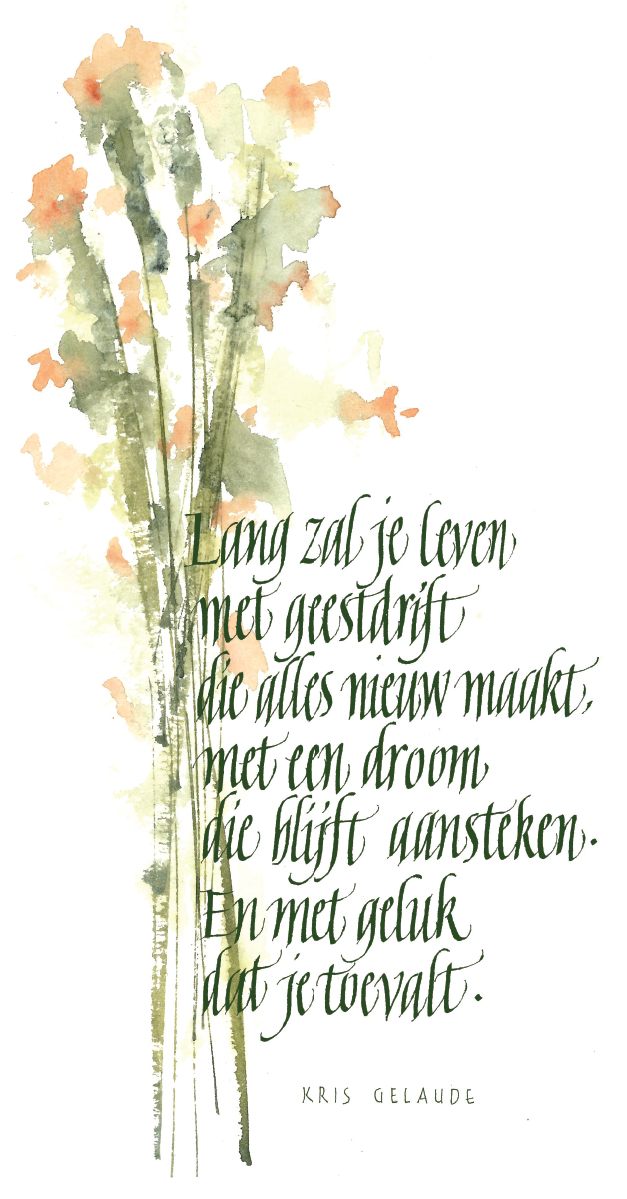 Lang zal je leven
met geestdrift
die alles nieuw maakt,
met een droom
die blijft aansteken.
En met geluk
dat je toevalt.
KRIS GELAUDE